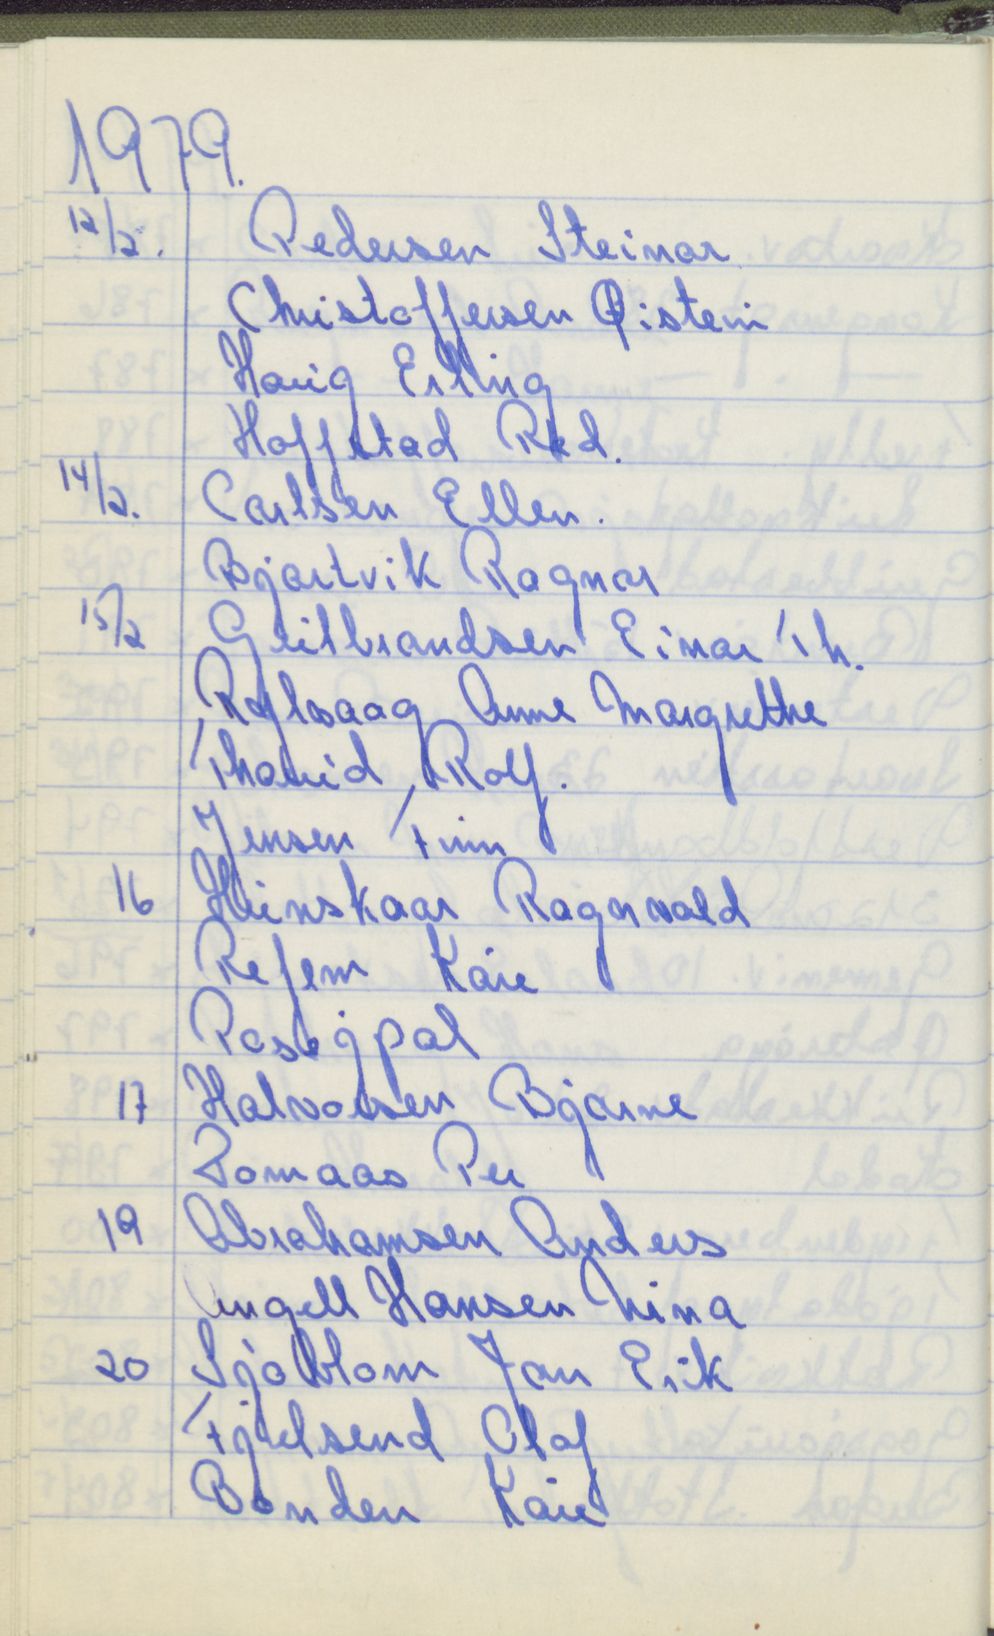 1979.
12/2. Pedersen Steinar
Christoffersen Øistein
Hauig Erling
Hoffstad Rkd.
14/2. Carlsen Ellen.
Bjartvik Ragnar
15/2 Guilbrandsen Einar Th.
Anne Margrethe
Rolf.
Jensen Finn
16 Heinskaar Ragnvald
Refsem Kåre
17 Halvorsen Bjarne
Romaas Per
19 Abrahamsen Anders
Angell Hansen Nina
20 Sjøblom Jan Erik
Fjelsend Olaf
Bonden Kåre